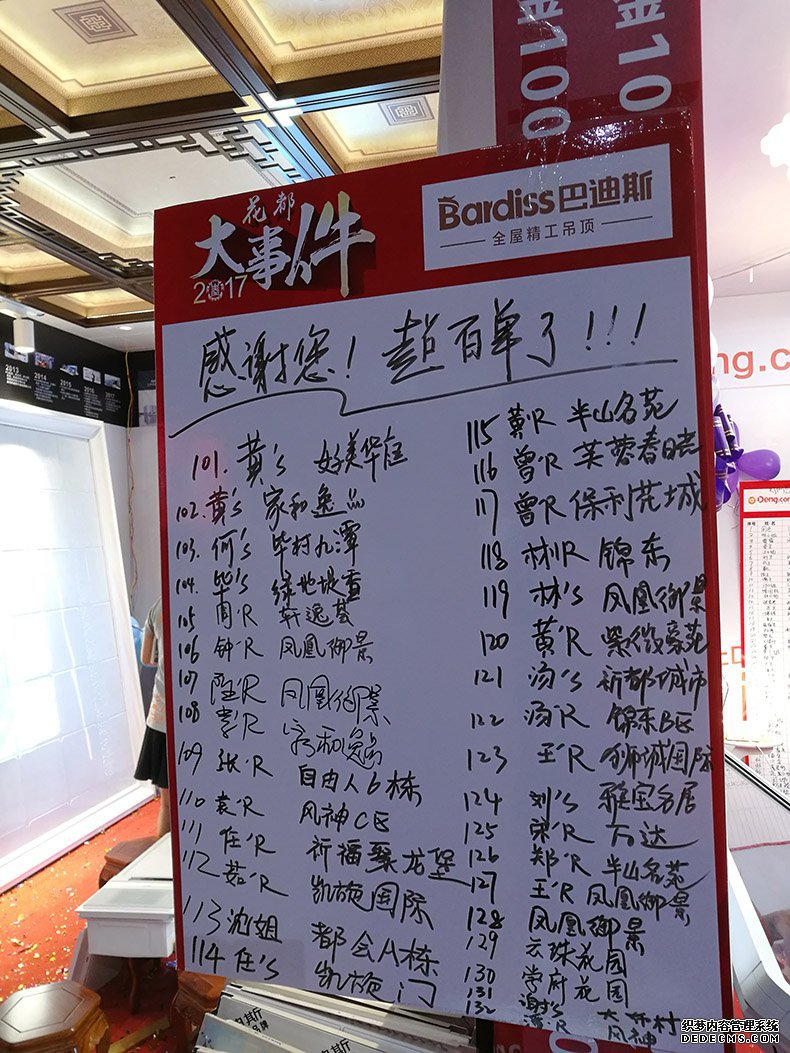 金100
金10
花都
大事件
2017
Bardiss巴迪斯
全屋精工吊顶
感谢您！超百单了!!!
101. 黄's 好美华庭
102. 黄's 家和逸品
103. 何's 毕村九潭
104. 毕's 绿地
105 周'R 轩逸荟
106 钟'R 凤凰御景
107 陆'R 凤凰御景
108 彭'R 家和逸品
109 张'R 自由人6栋
110 袁'R 风神C区
111 任'R 祈福聚龙堡
112 茹'R 凯旋国际
113 沈姐 都会A栋
114 任's 凯旋门
115 黄'R 半山名苑
116 曾'R 芙蓉春晓
117 曾'R 保利花城
118 林'R 锦东
119 林's 凤凰御景
120 黄'R 紫薇豪苑
121 汤's 祈都城市
122 汤'R 锦东B区
123 王'R 狮城国际
124 刘's 雅宝名居
125 荣'R 万达
126 郑'R 半山名苑
127 王'R 凤凰御景
128 凤凰御景
129 云珠花园
130 学府花园
131 谢's
132 谭'R 风神
2013 2014 2015 2016 2017
eng.c
Deng.com
织梦内容管理系统
DEDECMS.COM